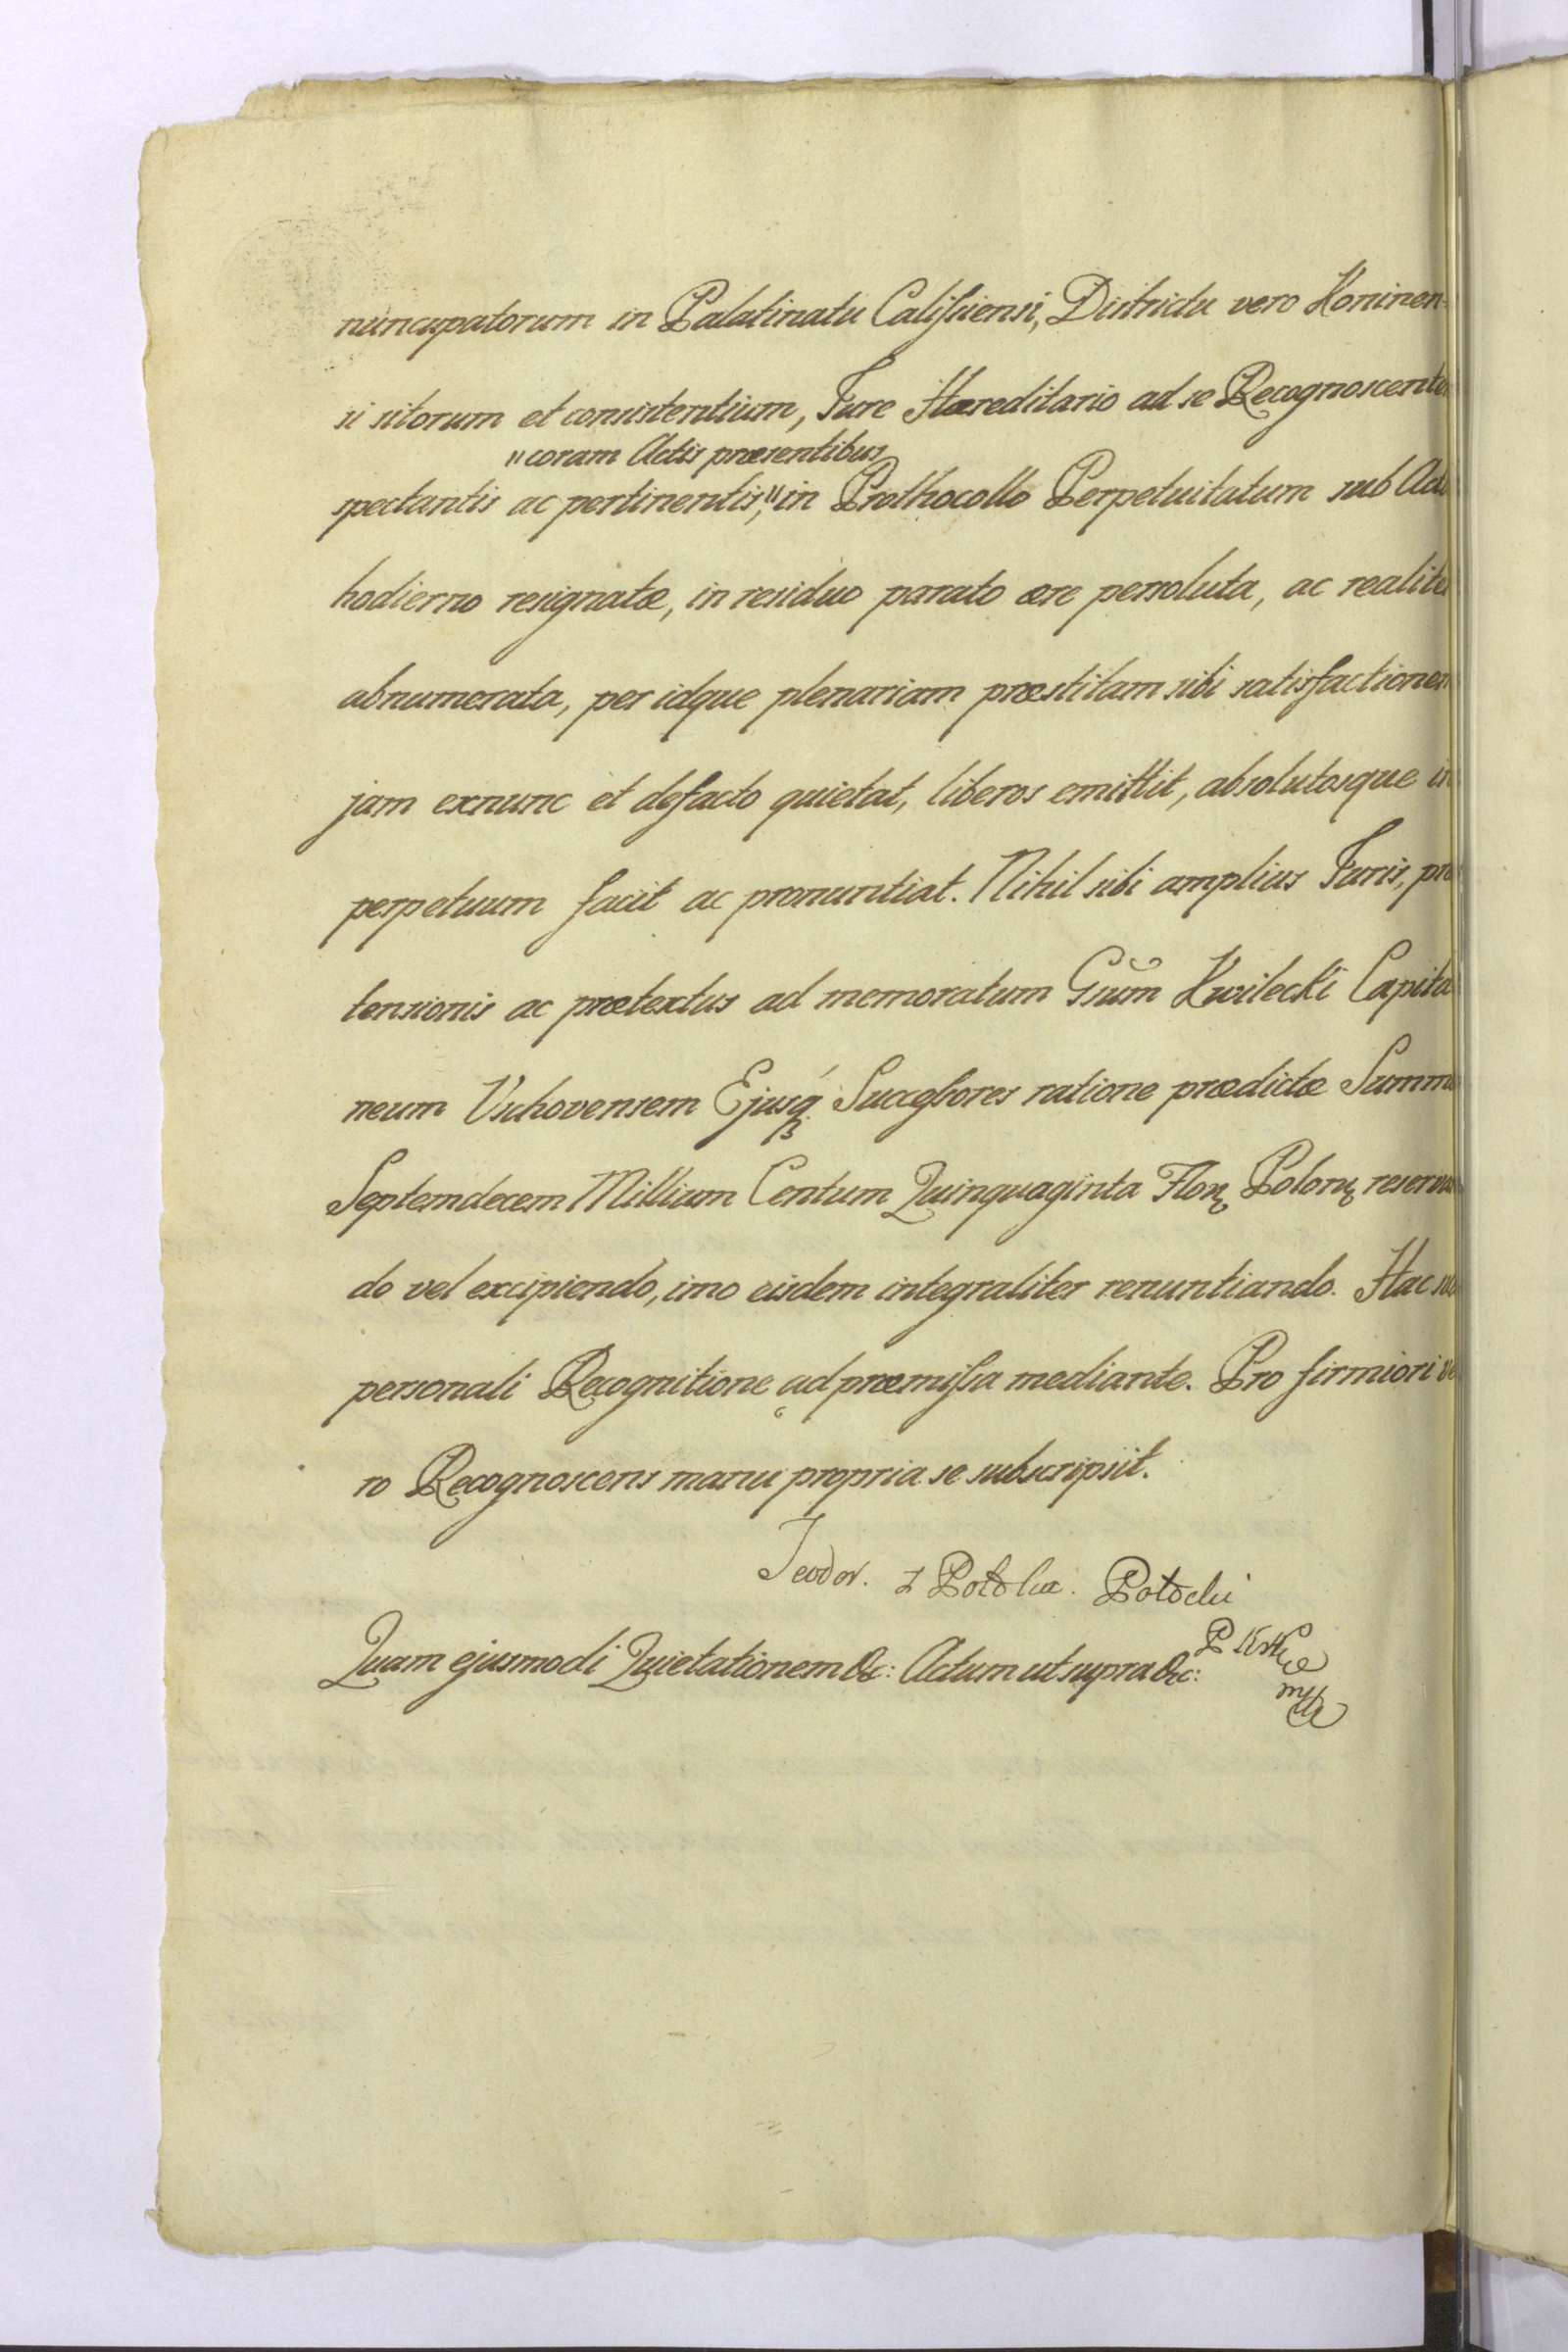 nuncupatorum in Palatinatu Calisſiensi, Districtu vero Koninen-
si sitorum et consistentium, Jure Hæreditario ad se Recognoscente
"coram Actis præsentibus
spectantis ac pertinentis," in Prothocollo Perpetuitatum sub Act
hodierno resignatæ, in residuo parato ære persoluta, ac realite
abnumerata, per idque plenariam præstitam sibi satisfactionem
jam exnunc et defacto quietat, liberos emittit, absolutosque in
perpetuum facit ac pronuntiat. Nihil sibi amplius Juris, præ
tensionis ac prætextus ad memoratum Gsum Kwilecki Capita
neum Vschovensem Ejusq́ꝫ Succeſsores ratione prædictæ Summæ
Septemdecem Millium Centum Quinquaginta Florꝝ Polorꝝ reservan
do vel excipiendo, imo eisdem integraliter renuntiando. Hac sua
personali Recognitione ad præmiſsa mediante. Pro firmiori ve
ro Recognoscens manu propria se subscripsit.
Teodor. z Potoka. Potocki
Quam ejusmodi Quietationem &c: Actum ut supra &c: